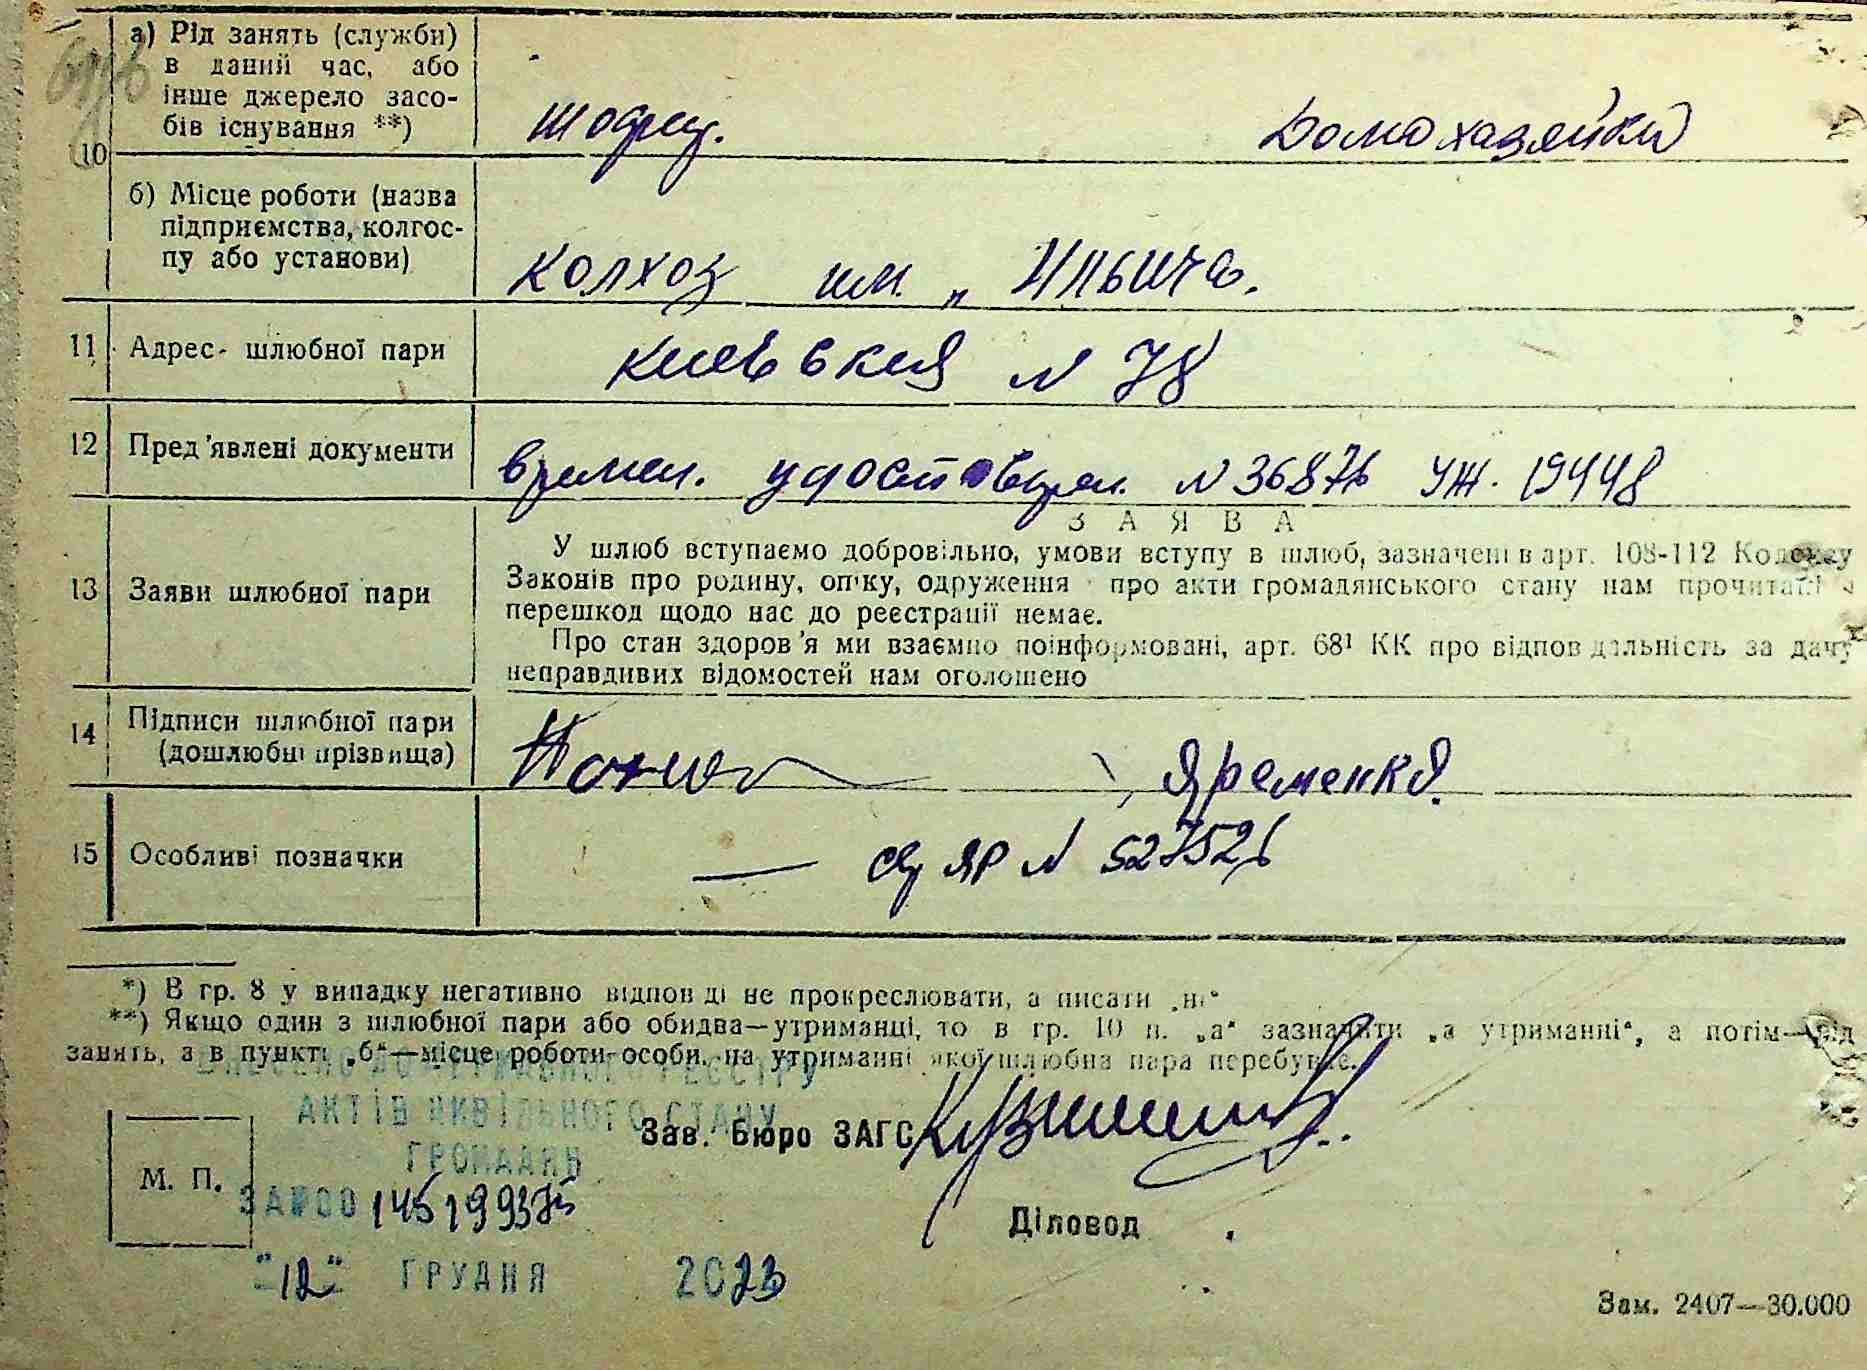 10
а) Рід занять (служби)
в даний час, або
інше джерело засо-
бів існування **)
шофер. Домохазяйки
б) Місце роботи (назва
підприємства, колгос-
пу або установи)
колхоз им. „ Ильича.
11 Адрес- шлюбної пари
Киевская N 78
12 Пред'явлені документи
времен. удостоверен. N 36876 УЖ. 19448
ЗАЯВА
13 Заяви шлюбної пари
У шлюб вступаємо добровільно, умови вступу в шлюб, зазначені в арт. 108-112 Кодексу
Законів про родину, опіку, одруження про акти громадянського стану нам прочитані і
перешкод щодо нас до реєстрації немає.
Про стан здоров'я ми взаємно поінформовані, арт. 68¹ КК про відповідальність за дачу
неправдивих відомостей нам оголошено
14 Підписи шлюбної пари
(дошлюбні прізвища)
Яременко.
15 Особливі позначки
— ЯР N 527526
*) В гр. 8 у випадку негативної відповіді не прокреслювати, а писати „ні“
**) Якщо один з шлюбної пари або обидва—утриманці, то в гр. 10 п. „а“ зазначити „а утриманні“, а потім—рід
занять, а в пункті „б“—місце роботи особи, на утриманні якої шлюбна пара перебуває.
ВНЕСЕНО ДО ДЕРЖАВНОГО РЕЄСТРУ
АКТІВ ЦИВІЛЬНОГО СТАНУ
ГРОМАДЯН
Зав. Бюро ЗАГС
М. П.
ЗА №00 145199375
Діловод
"12" ГРУДНЯ 2023
Зам. 2407—30.000